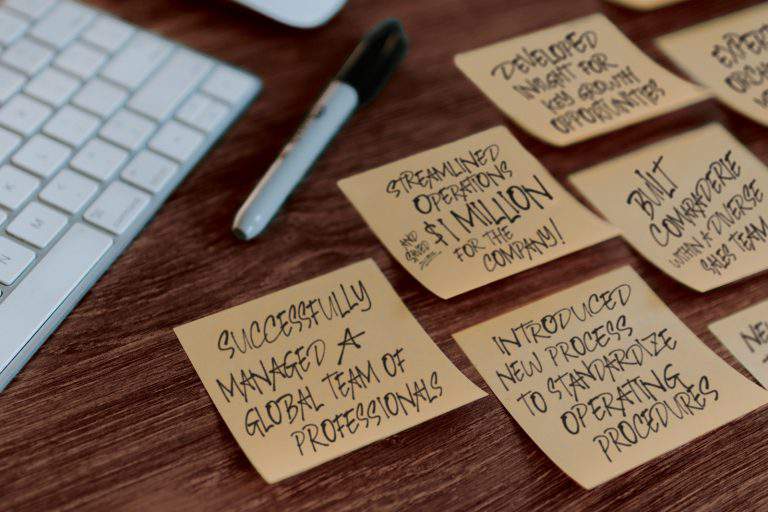 DEVELOPED
INSIGHT FOR
KEY GROWTH
OPPORTUNITES
STREAMLINED
OPERATIONS
AND SAVED $1 MILLION
FOR THE
COMPANY!
BUILT
COMRADERIE
WITHIN A DIVERSE
SALES TEAM
SUCCESSFULLY
MANAGED A
GLOBAL TEAM OF
PROFESSIONALS
INTRODUCED
NEW PROCESS
TO STANDARDIZE
OPERATING
PROCEDURES
K
M
N